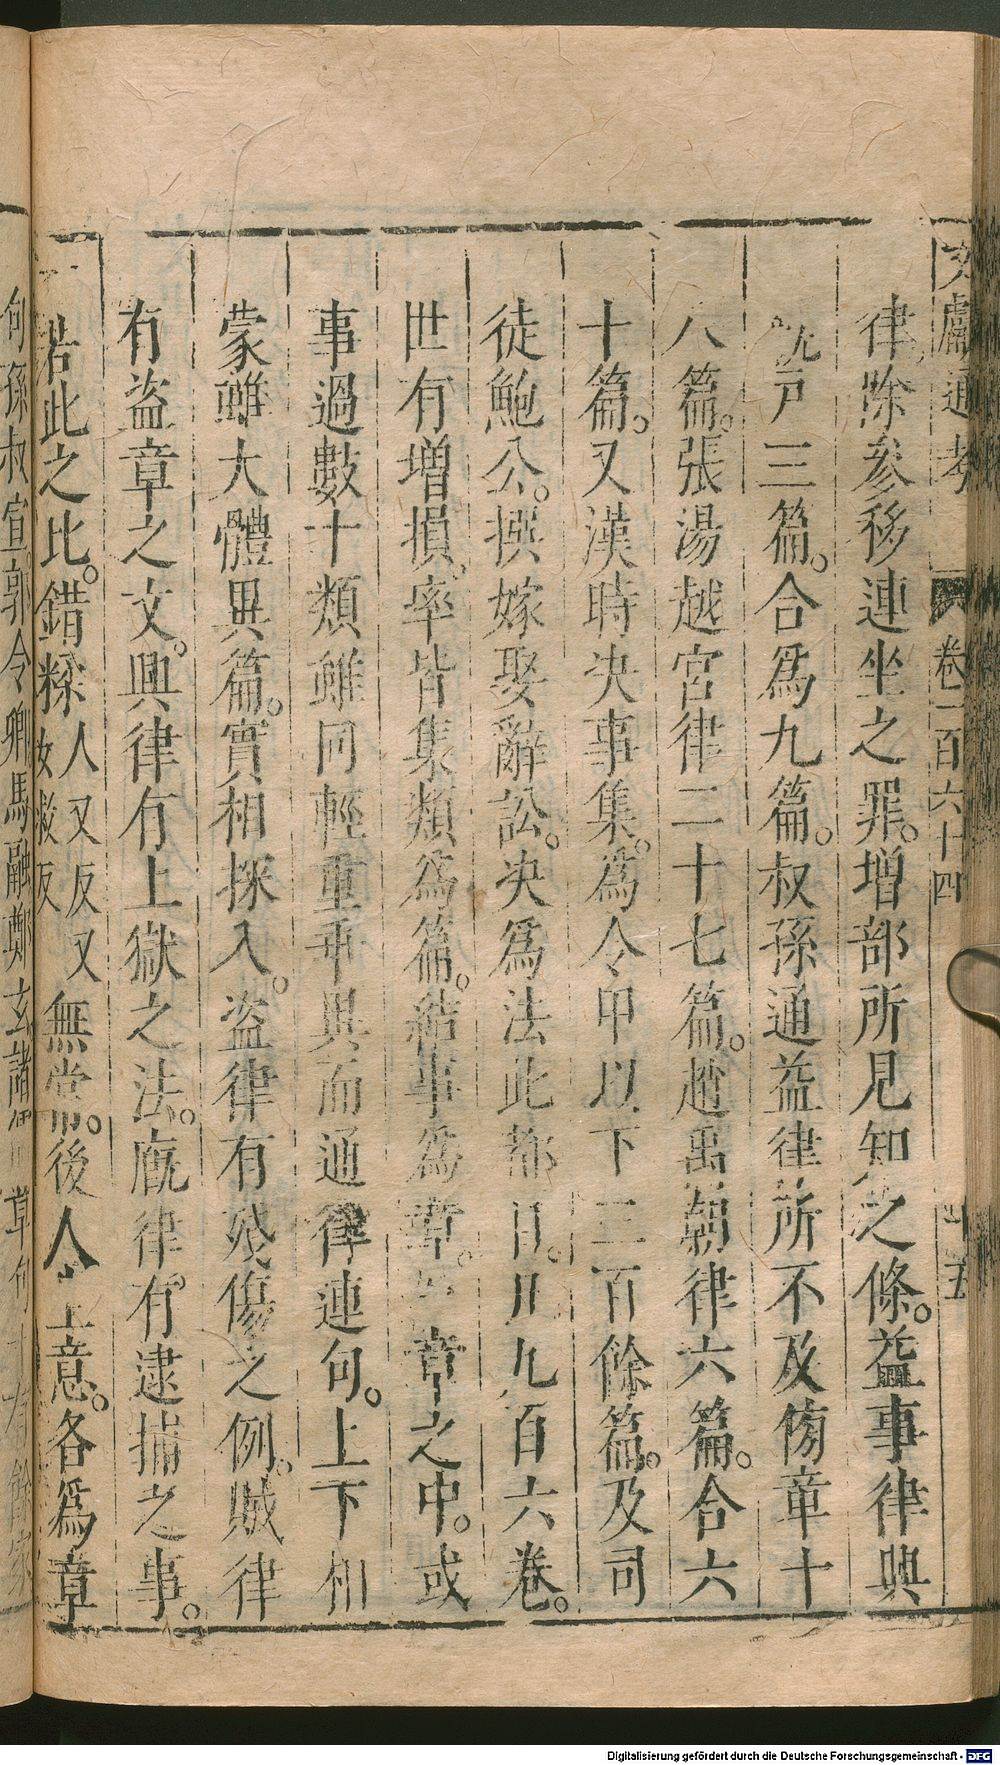 文獻通考 卷一百六十四 十五
律除參移連坐之罪。增部所見知之條。益事律興
廐戸三篇。合爲九篇。叔孫通益律所不及傍章十
八篇。張湯越宮律二十七篇。趙禹朝律六篇。合六
十篇。又漢時决事集。爲令甲以下三百餘篇。及司
徒鮑公。撰嫁娶辭訟。决爲法比都目。凡九百六卷。
世有増損。率皆集類爲篇。結事爲章。一章之中。或
事過數十類雖同輕重乖異而通律連句。上下相
蒙雖大體異篇。實相採入。盜律有殘傷之例。賊律
有盗章之文。興律有上獄之法。廐律。有逮捕之事。
若此之比。錯糅人又反又女救反無常。後人生意。各爲章
句孫叔宣。郭令卿馬融鄭玄諸儒章句十有餘家
Digitalisierung gefördert durch die Deutsche Forschungsgemeinschaft - DFG